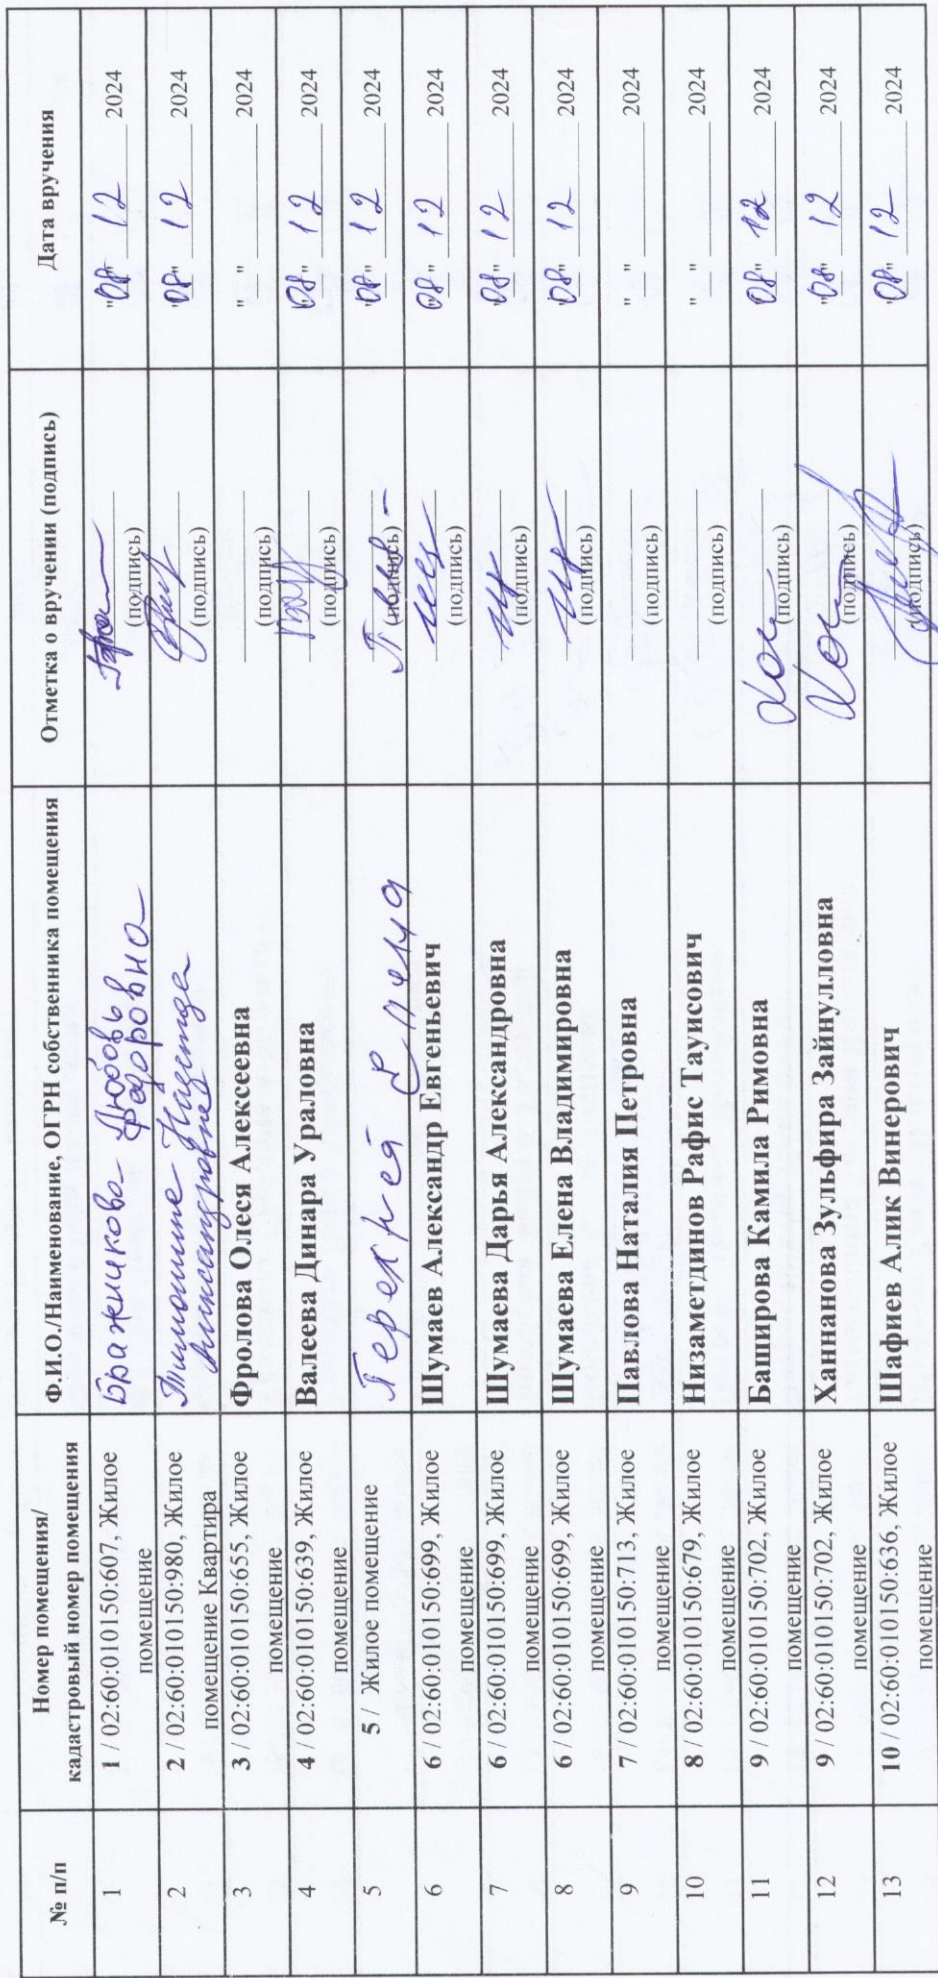 № п/п	Номер помещения/ кадастровый номер помещения	Ф.И.О./Наименование, ОГРН собственника помещения	Отметка о вручении (подпись)	Дата вручения
1	1 / 02:60:010150:607, Жилое помещение	Бражникова Любовь	(подпись)	"08" 12 2024
2	2 / 02:60:010150:980, Жилое помещение Квартира	Надежда Александровна	(подпись)	"08" 12 2024
3	3 / 02:60:010150:655, Жилое помещение	Фролова Олеся Алексеевна	(подпись)	" " 2024
4	4 / 02:60:010150:639, Жилое помещение	Валеева Динара Ураловна	(подпись)	"08" 12 2024
5	5 / Жилое помещение		(подпись)	"08" 12 2024
6	6 / 02:60:010150:699, Жилое помещение	Шумаев Александр Евгеньевич	(подпись)	"08" 12 2024
7	6 / 02:60:010150:699, Жилое помещение	Шумаева Дарья Александровна	(подпись)	"08" 12 2024
8	6 / 02:60:010150:699, Жилое помещение	Шумаева Елена Владимировна	(подпись)	"08" 12 2024
9	7 / 02:60:010150:713, Жилое помещение	Павлова Наталия Петровна	(подпись)	" " 2024
10	8 / 02:60:010150:679, Жилое помещение	Низаметдинов Рафис Тауисович	(подпись)	" " 2024
11	9 / 02:60:010150:702, Жилое помещение	Баширова Камила Римовна	(подпись)	"08" 12 2024
12	9 / 02:60:010150:702, Жилое помещение	Ханнанова Зульфира Зайнулловна	(подпись)	"08" 12 2024
13	10 / 02:60:010150:636, Жилое помещение	Шафиев Алик Винерович	(подпись)	"08" 12 2024